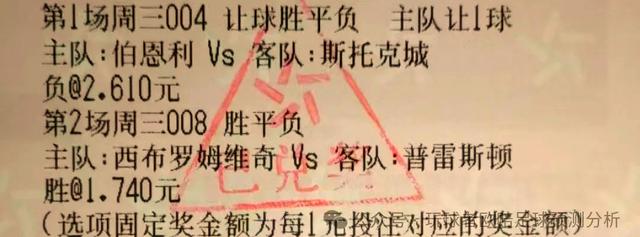 第1场周三004 让球胜平负 主队让1球
主队:伯恩利 Vs 客队:斯托克城
负@2.610元
第2场周三008 胜平负
主队:西布罗姆维奇 Vs 客队:普雷斯顿
胜@1.740元
已兑奖
(选项固定奖金额为每1元投注对应的奖金额
公众号 足球预测分析